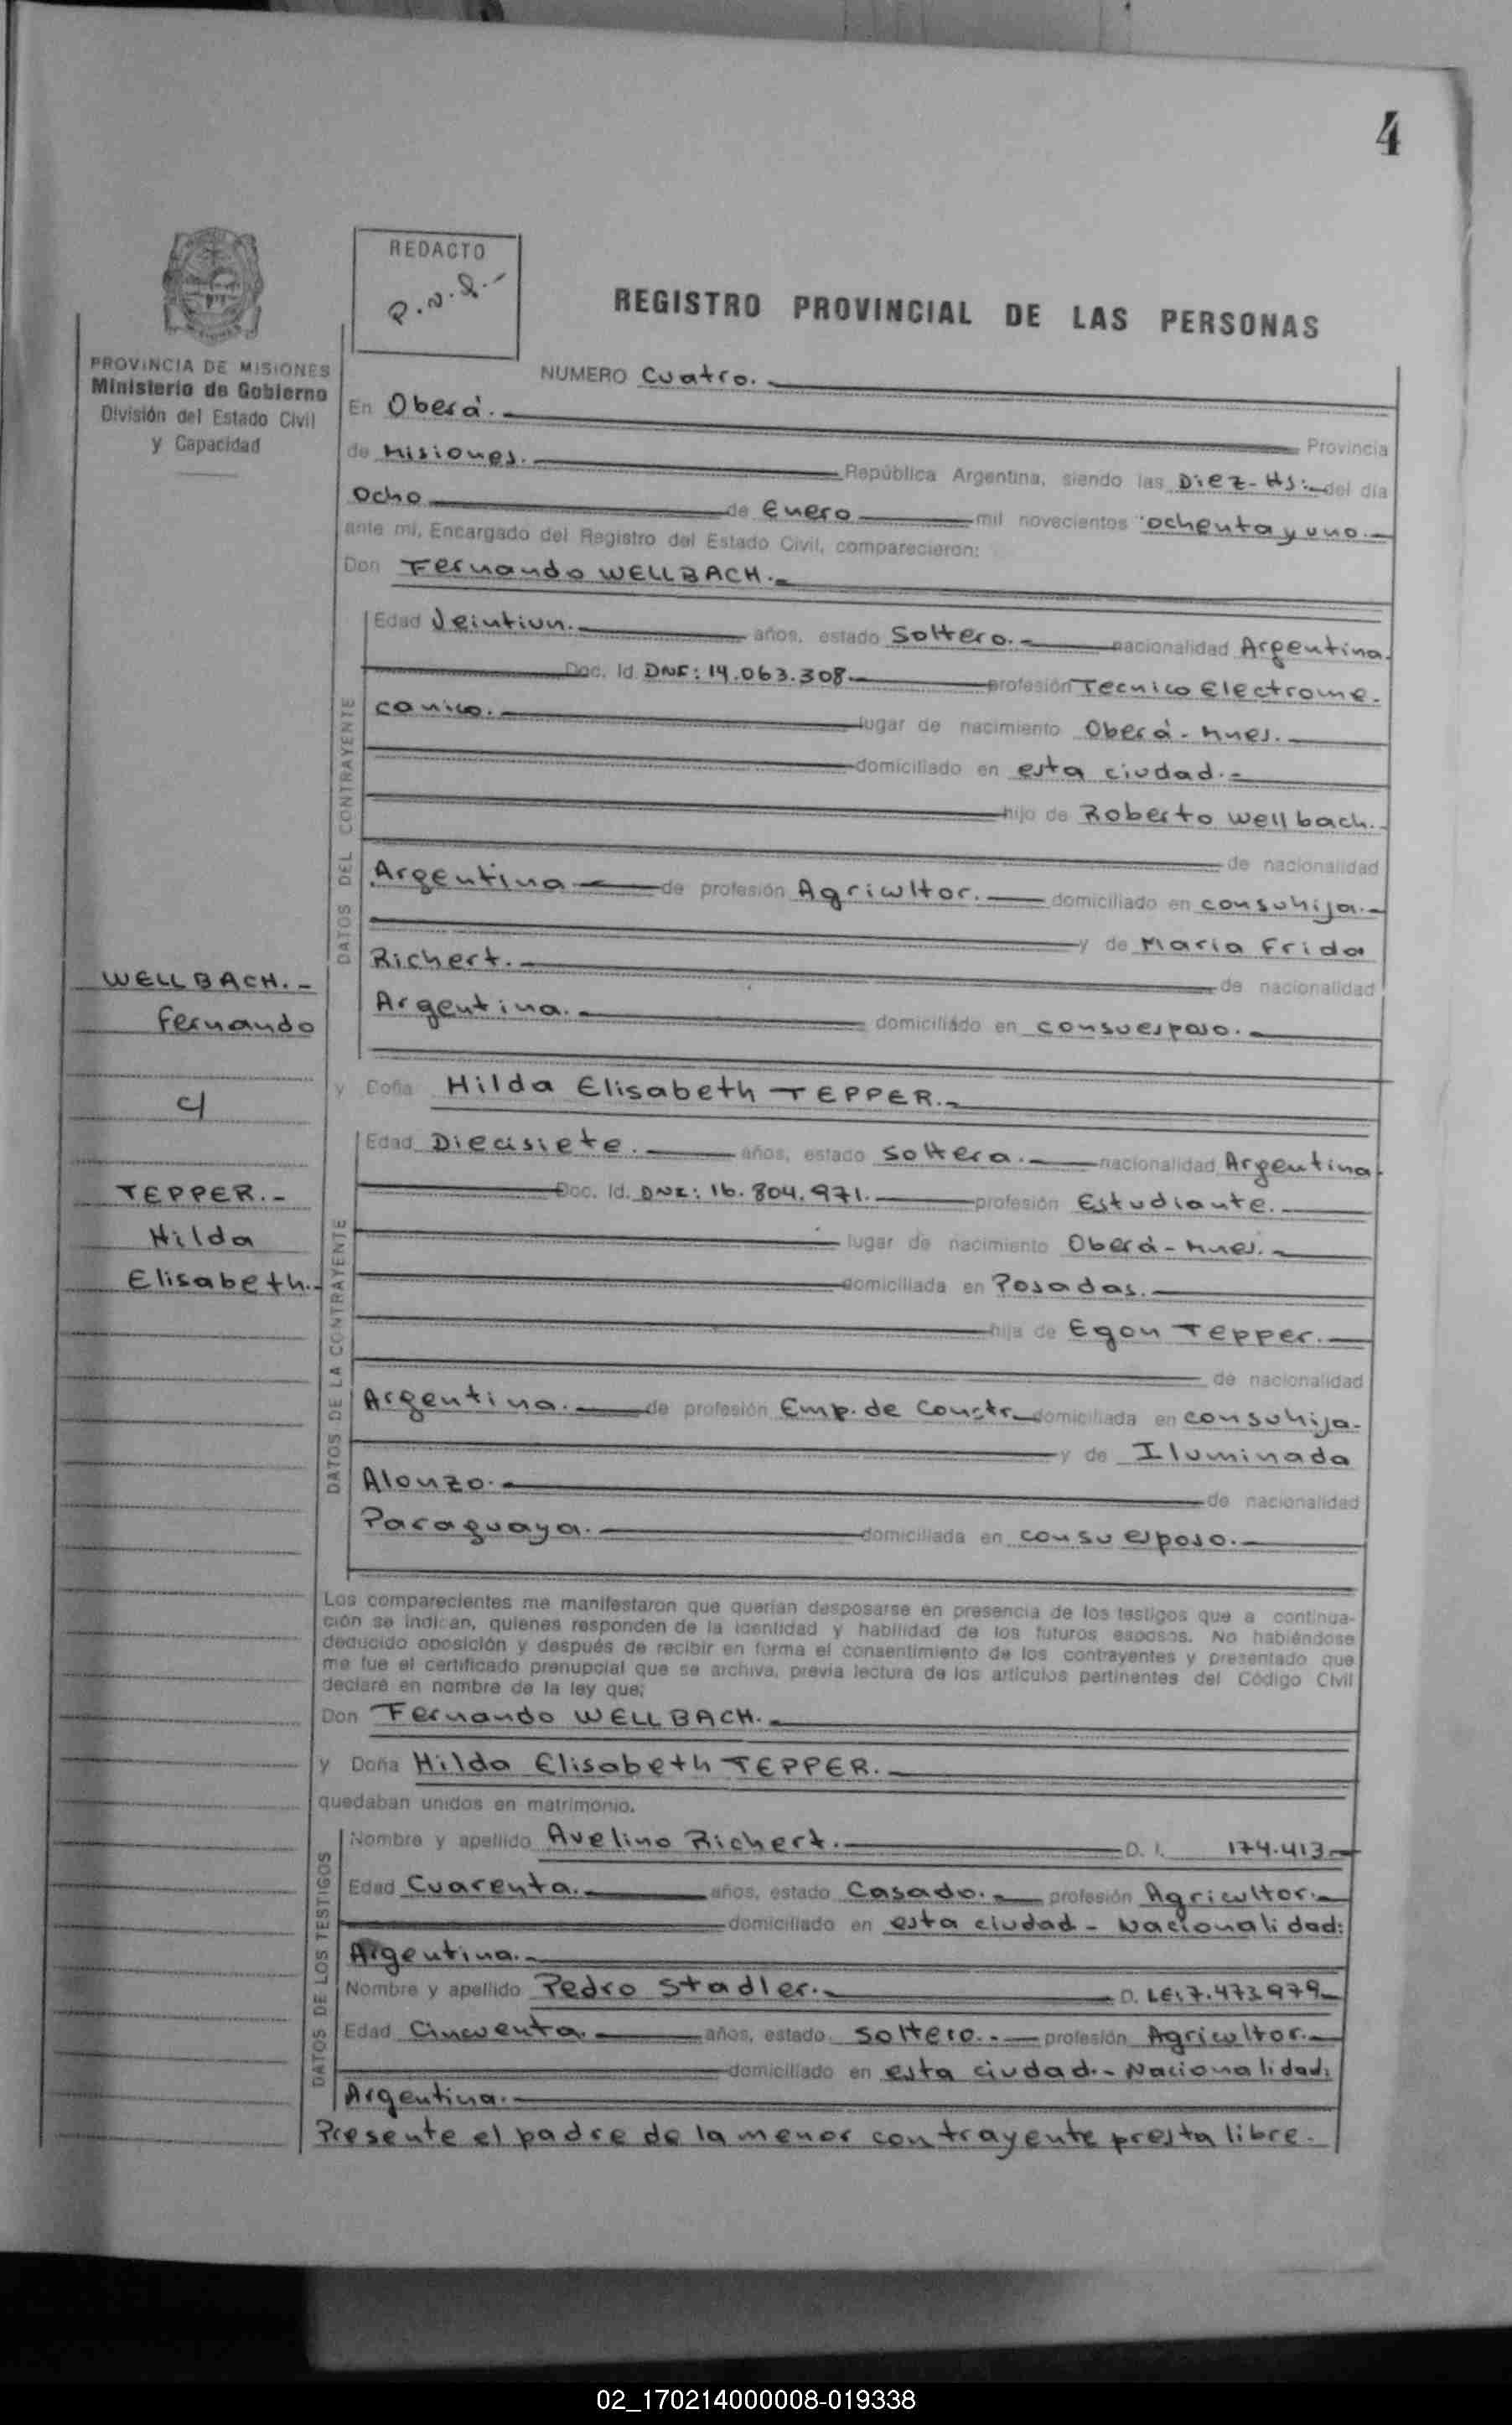 4
REDACTO
R.N.S.-
REGISTRO PROVINCIAL DE LAS PERSONAS
PROVINCIA DE MISIONES
Ministerio de Gobierno
División del Estado Civil
y Capacidad
NUMERO Cuatro.
En Oberá. Provincia
de Misiones. República Argentina, siendo las Diez-Hs: del día
Ocho de Enero mil novecientos ochenta y uno.-
ante mi, Encargado del Registro del Estado Civil, comparecieron:
Don Fernando WELLBACH.-
DATOS DEL CONTRAYENTE
Edad Veintiun. años, estado Soltero.- nacionalidad Argentina.
Doc. Id. DNI: 14.063.308.- profesión Tecnico Electrome-
canico. lugar de nacimiento Oberá-Mnes.
domiciliado en esta ciudad.-
hijo de Roberto Wellbach.
de nacionalidad
Argentina de profesión Agricultor. domiciliado en consuhija.-
y de Maria Frida
Richert. de nacionalidad
Argentina. domiciliado en consuesposo.
WELLBACH.-
Fernando
c/
TEPPER.-
Hilda
Elisabeth.-
y Doña Hilda Elisabeth TEPPER.-
DATOS DE LA CONTRAYENTE
Edad Diecisiete. años, estado Soltera. nacionalidad Argentina.
Doc. Id. DNI: 16.804.971. profesión Estudiante.
lugar de nacimiento Oberá-Mnes.-
domiciliada en Posadas.
hija de Egon Tepper.
de nacionalidad
Argentina. de profesión Emp. de Constr. domiciliada en consuhija.
y de Iluminada
Alonzo. de nacionalidad
Paraguaya. domiciliada en consu esposo.
Los comparecientes me manifestaron que querían desposarse en presencia de los testigos que a continua-
ción se indican, quienes responden de la identidad y habilidad de los futuros esposos. No habiéndose
deducido oposición y después de recibir en forma el consentimiento de los contrayentes y presentado que
me fue el certificado prenupcial que se archiva, previa lectura de los artículos pertinentes del Código Civil
declaré en nombre de la ley que;
Don Fernando WELLBACH.-
y Doña Hilda Elisabeth TEPPER.
quedaban unidos en matrimonio.
DATOS DE LOS TESTIGOS
Nombre y apellido Avelino Richert. D. I. 174.413
Edad Cuarenta. años, estado Casado. profesión Agricultor.-
domiciliado en esta ciudad - Nacionalidad:
Argentina.-
Nombre y apellido Pedro Stadler.- D. LE:7.473.979
Edad Cincuenta. años, estado Soltero.- profesión Agricultor.
domiciliado en esta ciudad.- Nacionalidad:
Argentina.
Presente el padre de la menor contrayente presta libre.
02_170214000008-019338